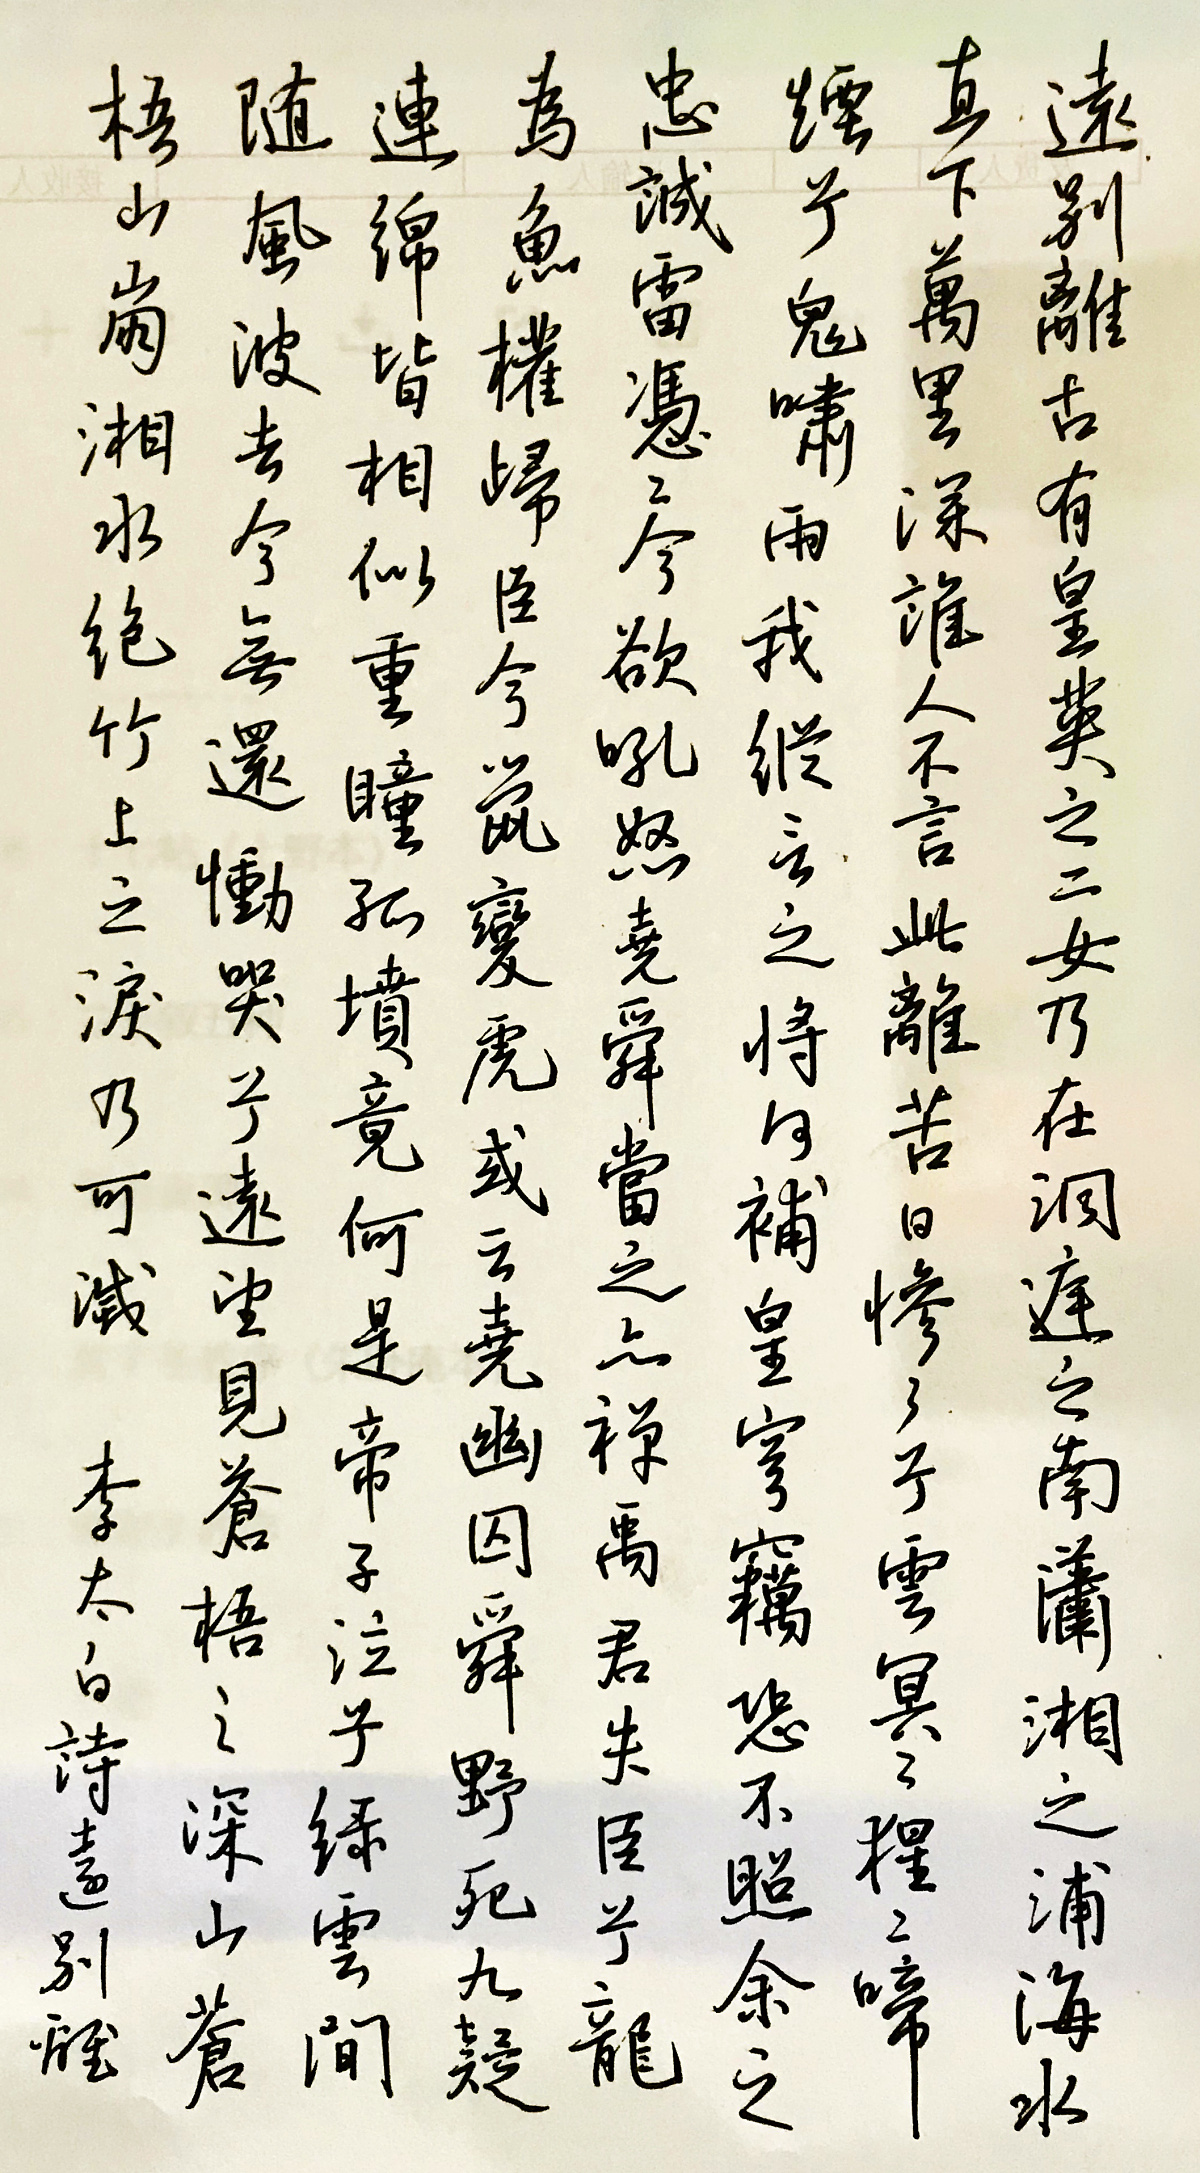 遠別離古有皇英之二女乃在洞庭之南瀟湘之浦海水
直下萬里深誰人不言此離苦日慘〻兮雲冥〻猩〻啼
煙兮鬼嘯雨我縱言之將何補皇穹竊恐不照余之
忠誠雷憑〻兮欲吼怒堯舜當之亦禅禹君失臣兮龍
為魚權歸臣兮鼠變虎或云堯幽囚舜野死九疑
連綿皆相似重瞳孤墳竟何是帝子泣兮綠雲間
随風波去兮無還慟哭兮遠望見蒼梧之深山蒼
梧山崩湘水絶竹上之淚乃可滅　李太白詩遠別離